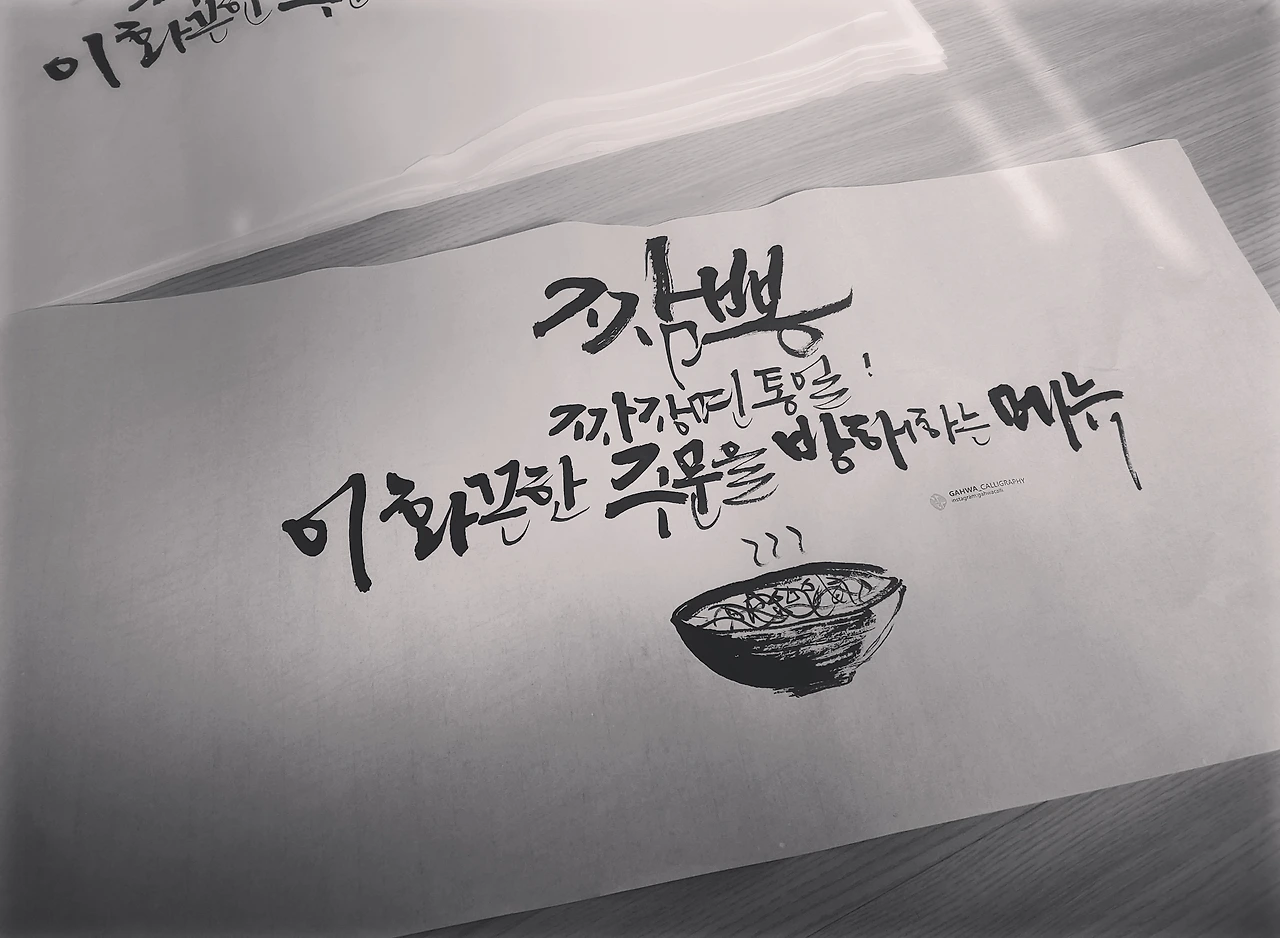 이 화끈한
짬뽕
짜장면 통일!
이 화끈한 주문을 방해하는 메뉴
GAHWA_CALLIGRAPHY
instagram:gahwacalli